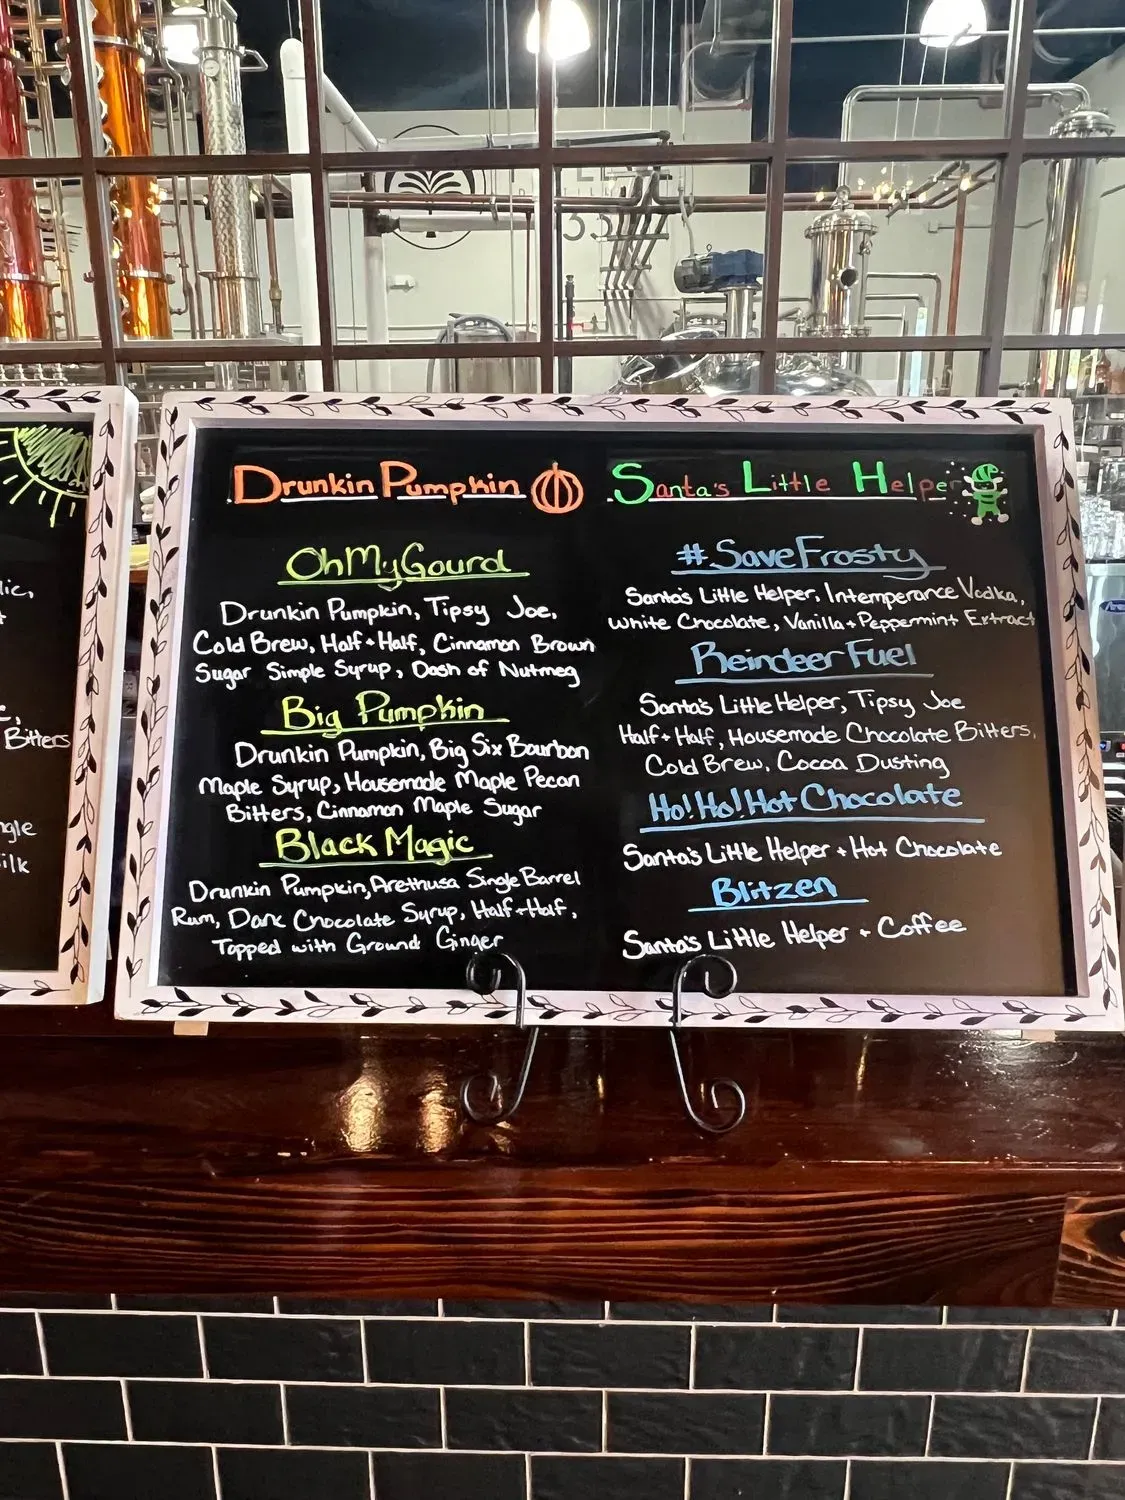 Drunkin Pumpkin
OhMyGourd
Drunkin Pumpkin, Tipsy Joe,
Cold Brew, Half + Half, Cinnamon Brown
Sugar Simple Syrup, Dash of Nutmeg
Big Pumpkin
Drunkin Pumpkin, Big Six Bourbon
Maple Syrup, Housemade Maple Pecan
Bitters, Cinnamon Maple Sugar
Black Magic
Drunkin Pumpkin, Arethusa Single Barrel
Rum, Dark Chocolate Syrup, Half + Half,
Topped with Ground Ginger
Santa's Little Helper
#SaveFrosty
Santa's Little Helper, Intemperance Vodka,
White Chocolate, Vanilla + Peppermint Extract
Reindeer Fuel
Santa's Little Helper, Tipsy Joe
Half + Half, Housemade Chocolate Bitters,
Cold Brew, Cocoa Dusting
Ho! Ho! Hot Chocolate
Santa's Little Helper + Hot Chocolate
Blitzen
Santa's Little Helper + Coffee
Bitters